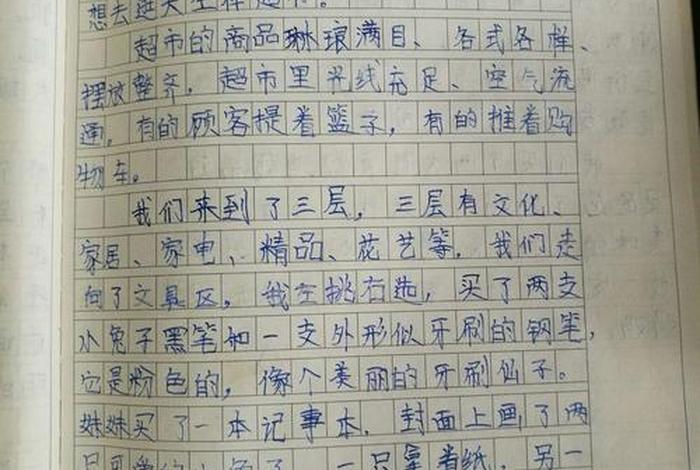 想去逛大型样超市。
超市的商品琳琅满目、各式各样、
摆放整齐,超市里光线充足、空气流
通,有的顾客提着篮子,有的推着购
物车。
我们来到了三层,三层有文化、
家居、家电、精品、花艺等,我们走
向了文具区,我左挑右选,买了两支
小兔子黑笔和一支外形似牙刷的钢笔,
它是粉色的,像个美丽的牙刷仙子。
妹妹买了一本记事本,封面上画了两
只可爱的小兔子,一只拿着纸,另一